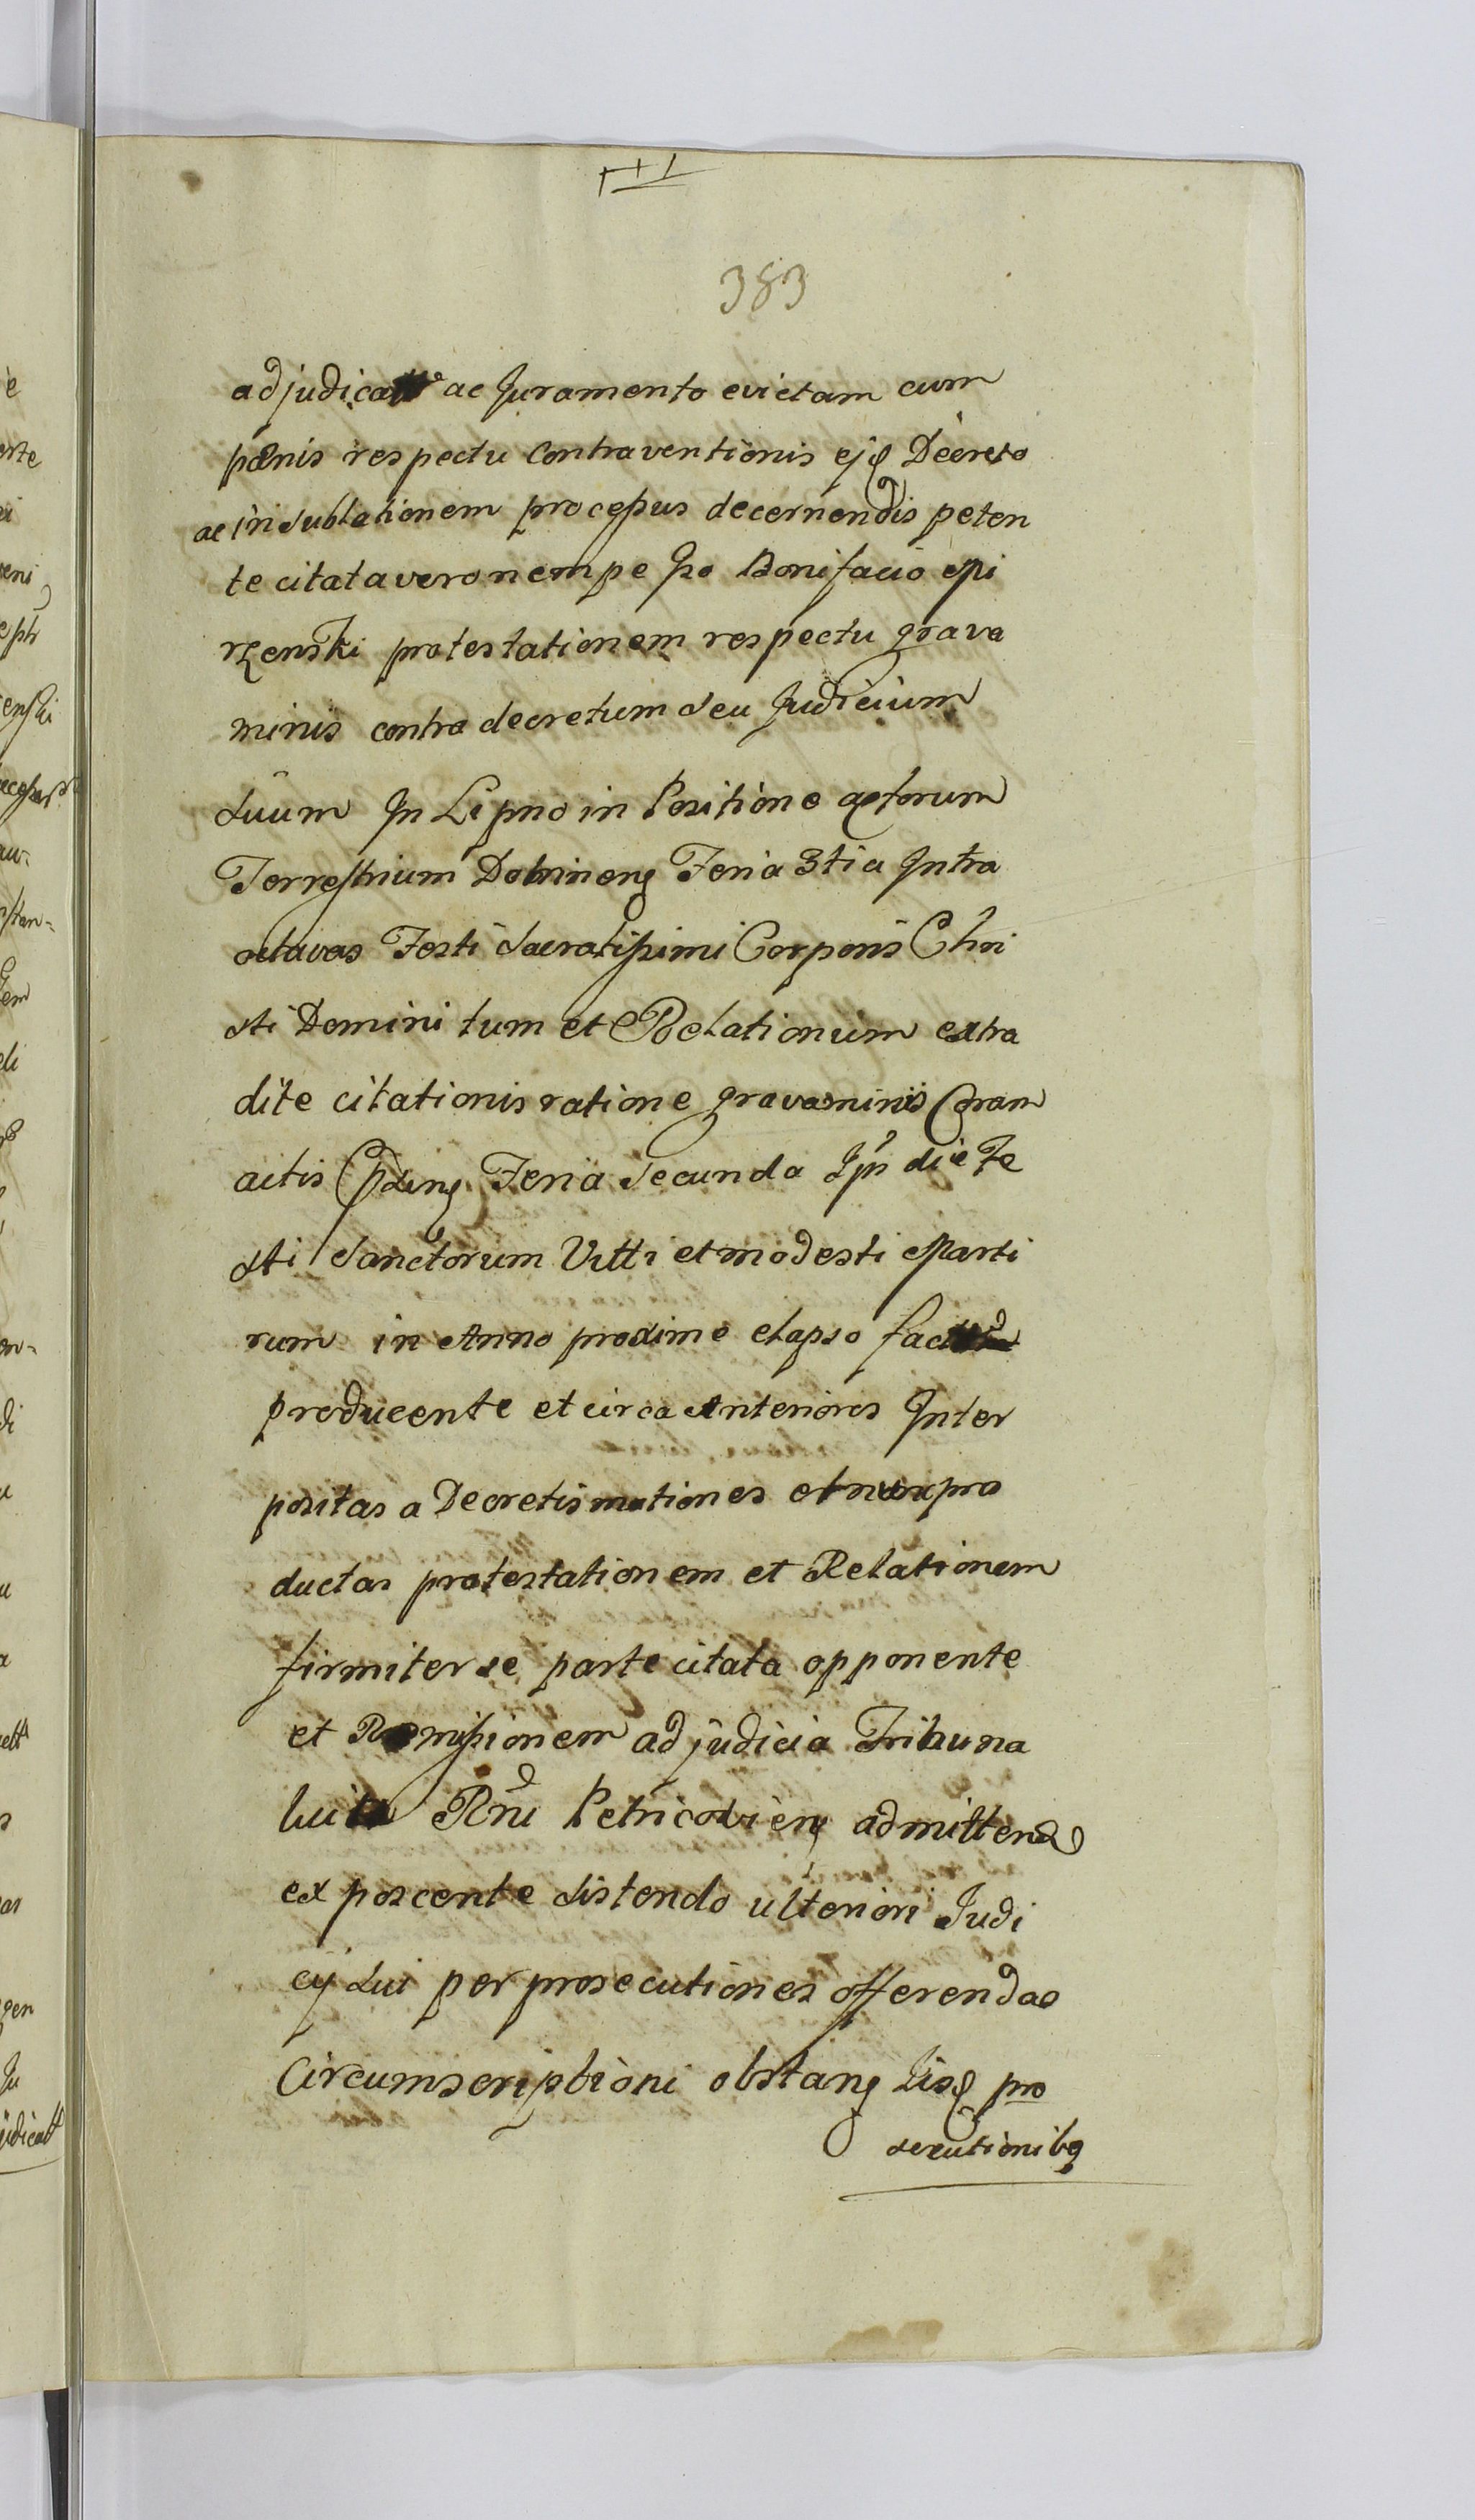 383
adjudica ac Juramento evictam cum
pœnis respectu Contraventionis ejq Decreto
ac in sublationem processus decernendis peten
te citata vero nempe Gso Bonifacio Mi
rzenski protestationem respectu grava
minis contra decretum seu Judicium
suum In Lipno in Positione actorum
Terrestrium Dobrinenq Feria 3tia Intra
octavas Festi Sacratissimi Corporis Chri
sti Domini tum et Relationum extra
dite citationis ratione gravaminis Coram
actis Feria Secunda Ipso die Fe
sti Sanctorum Vitti et modesti Marti
rum in Anno proxime elapso
producente et circa Anteriores Inter
positas a Decretis motiones et nunc pro
ductas protestationem et Relationem
firmiter se parte citata opponente
et Remissionem ad judicia Tribuna
Rni Petricovienq admittend
ex poscente sistendo ulteriori Judi
cij sui per prosecutiones offerendas
Circumscriptioni obstanq hisq pro
secutionibq